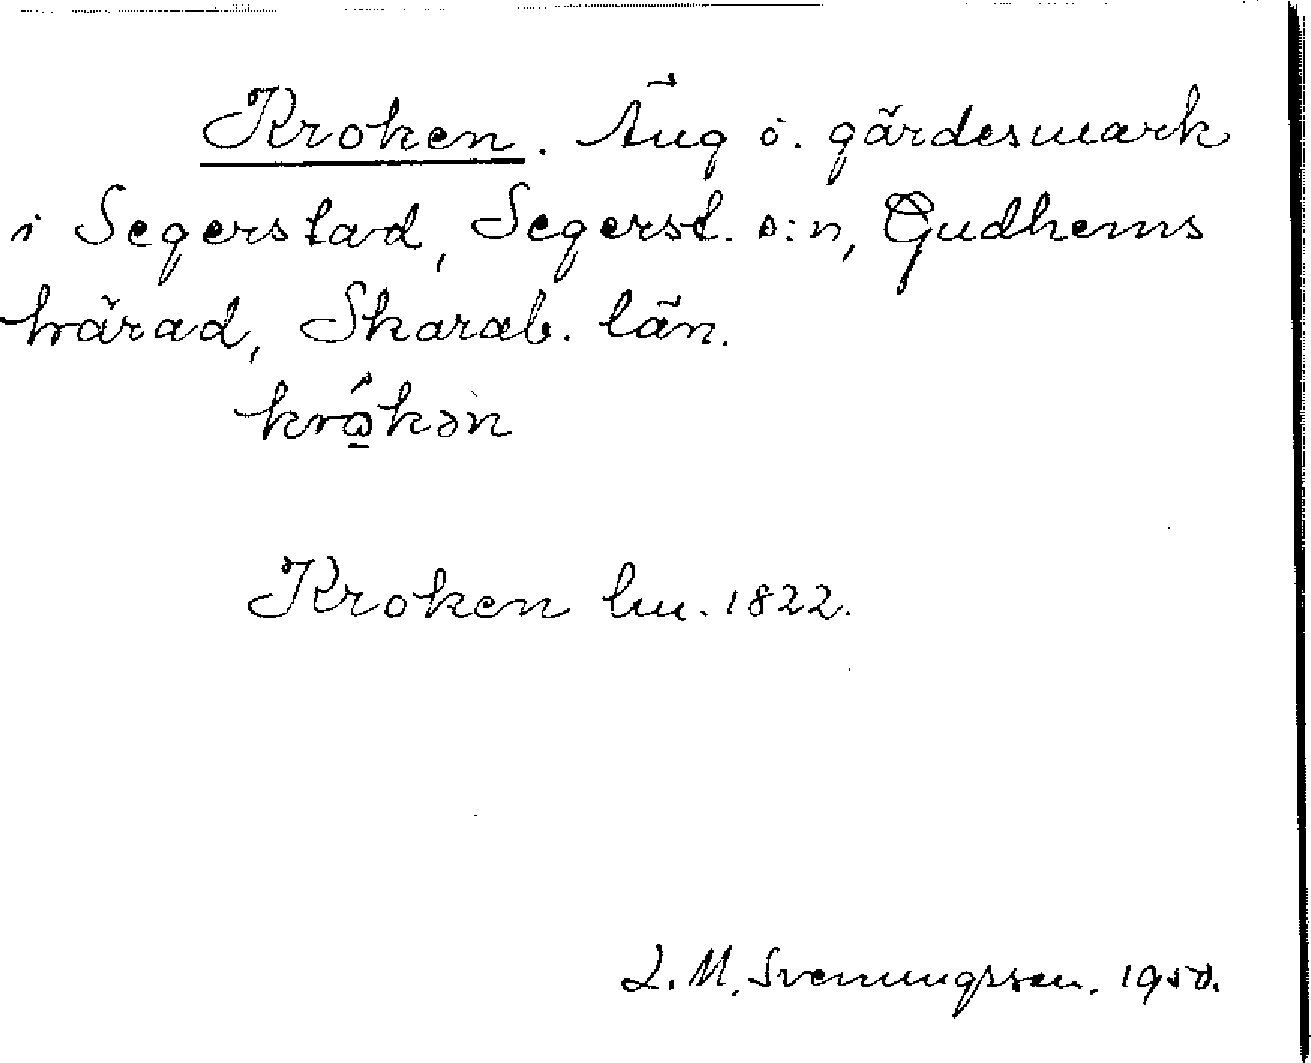 Kroken. Äng o. gärdesmark
i Segerstad, Segerst. s:n, Gudhems
härad, Skarab. län.
kró̲kə̀n
Kroken lm. 1822.
L. M. Svenungsson. 1950.